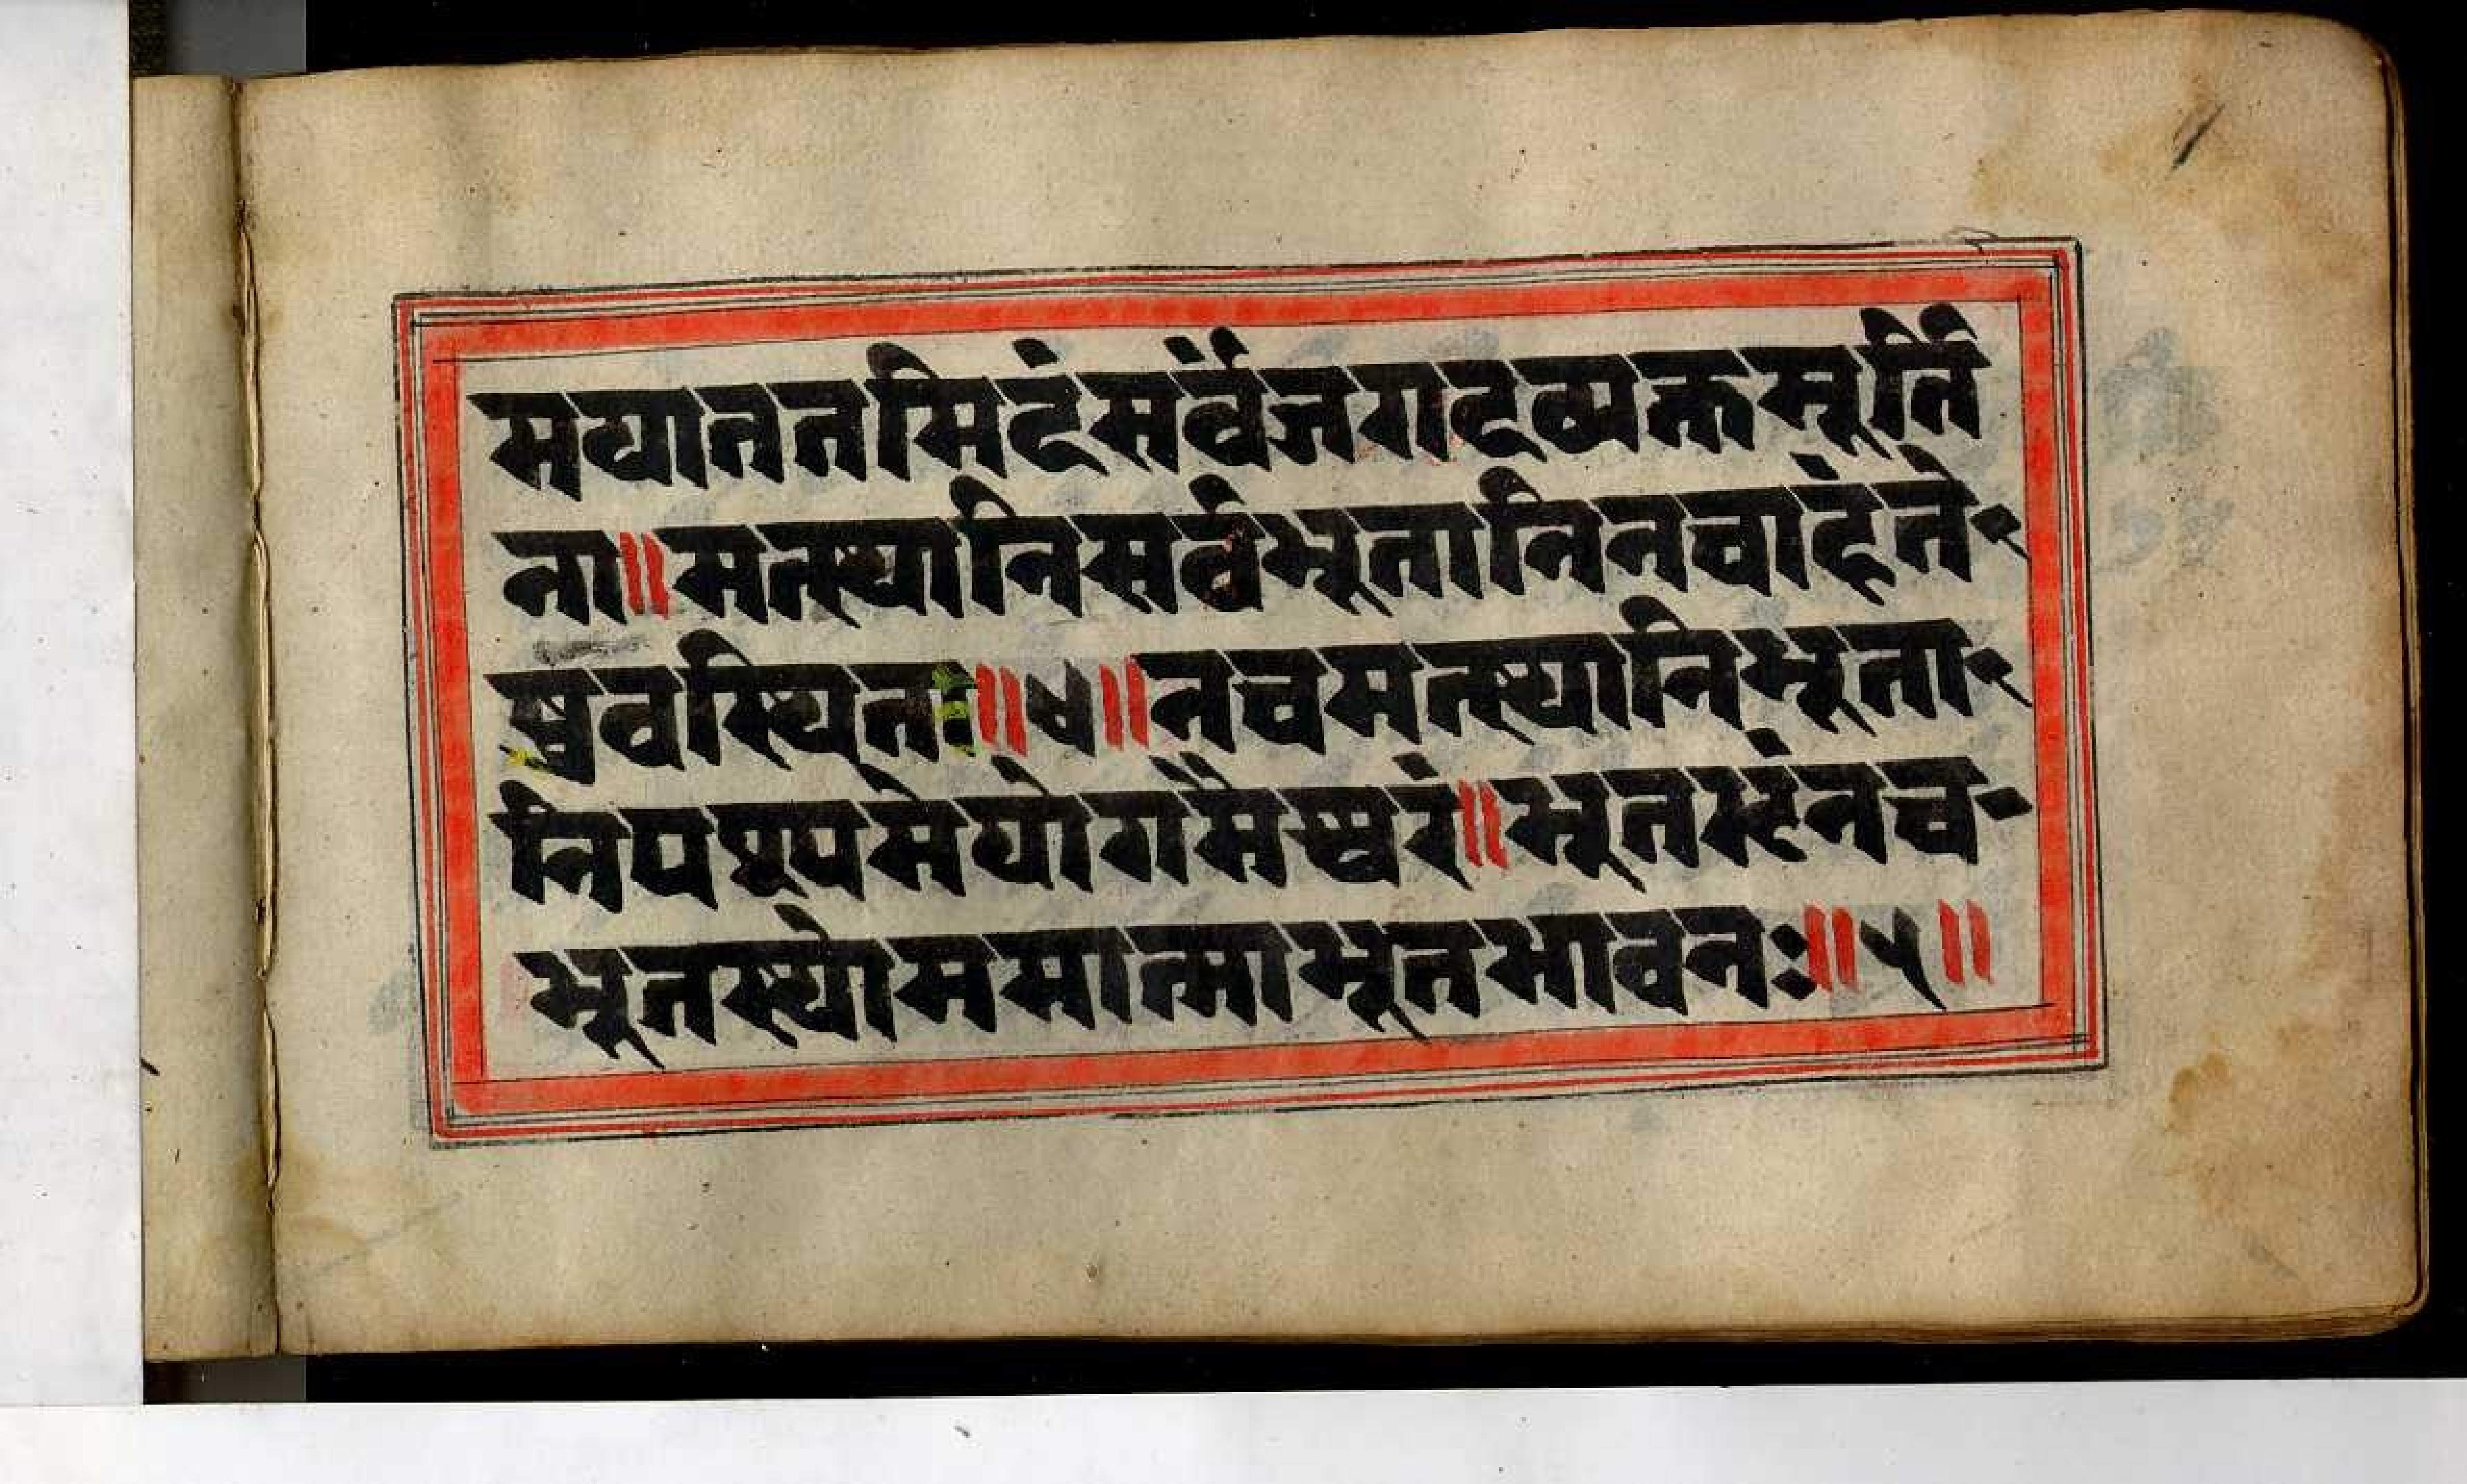 मयाततमिदंसर्वंजगदव्यक्तमूर्ति
ना॥मत्स्थानिसर्वभूतानिनचाहंते-
ष्ववस्थितः॥४॥नचमत्स्थानिभूता-
निपश्यमेयोगमैश्वरं॥भूतभृंनच-
भूतस्थोममात्माभूतभावनः॥५॥